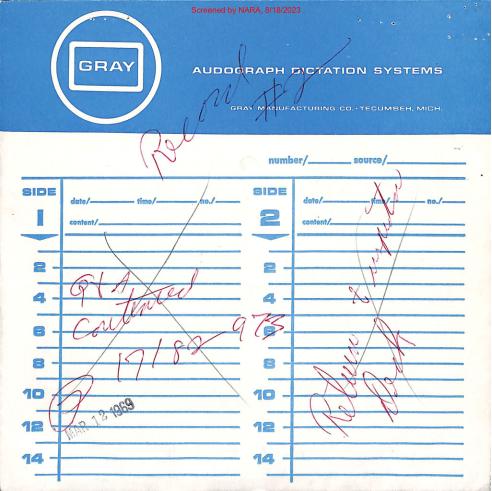 Screened by NARA, 8/18/2023
GRAY
AUDOGRAPH DICTATION SYSTEMS
GRAY MANUFACTURING CO. • TECUMSEH, MICH.
Record
#2
number/ source/
SIDE 1
date/ time/ no./
content/
2
4
6
8
10
12
14
Q & A
Continued
17182-973
MAR 12 1969
SIDE 2
date/ time/ no./
content/
2
4
6
8
10
12
14
Return